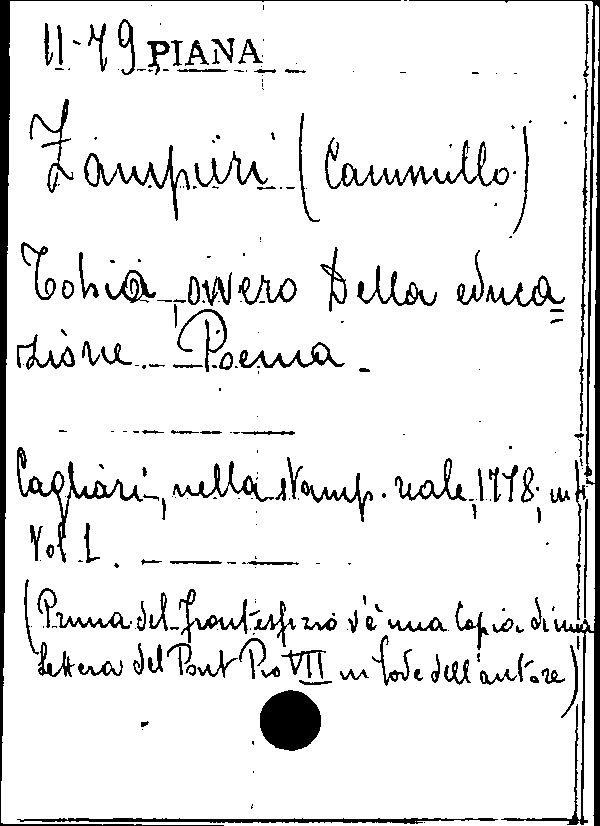 11-79 PIANA
Zampieri (Cammillo)
Tobia, ovvero Della educa=
zione. Poema.
Cagliari, nella stamp. reale, 1778; in 4°
Vol 1.
(Prima del frontespizio v'è una copia di una
lettera del Pont Pio VII in lode dell'autore)